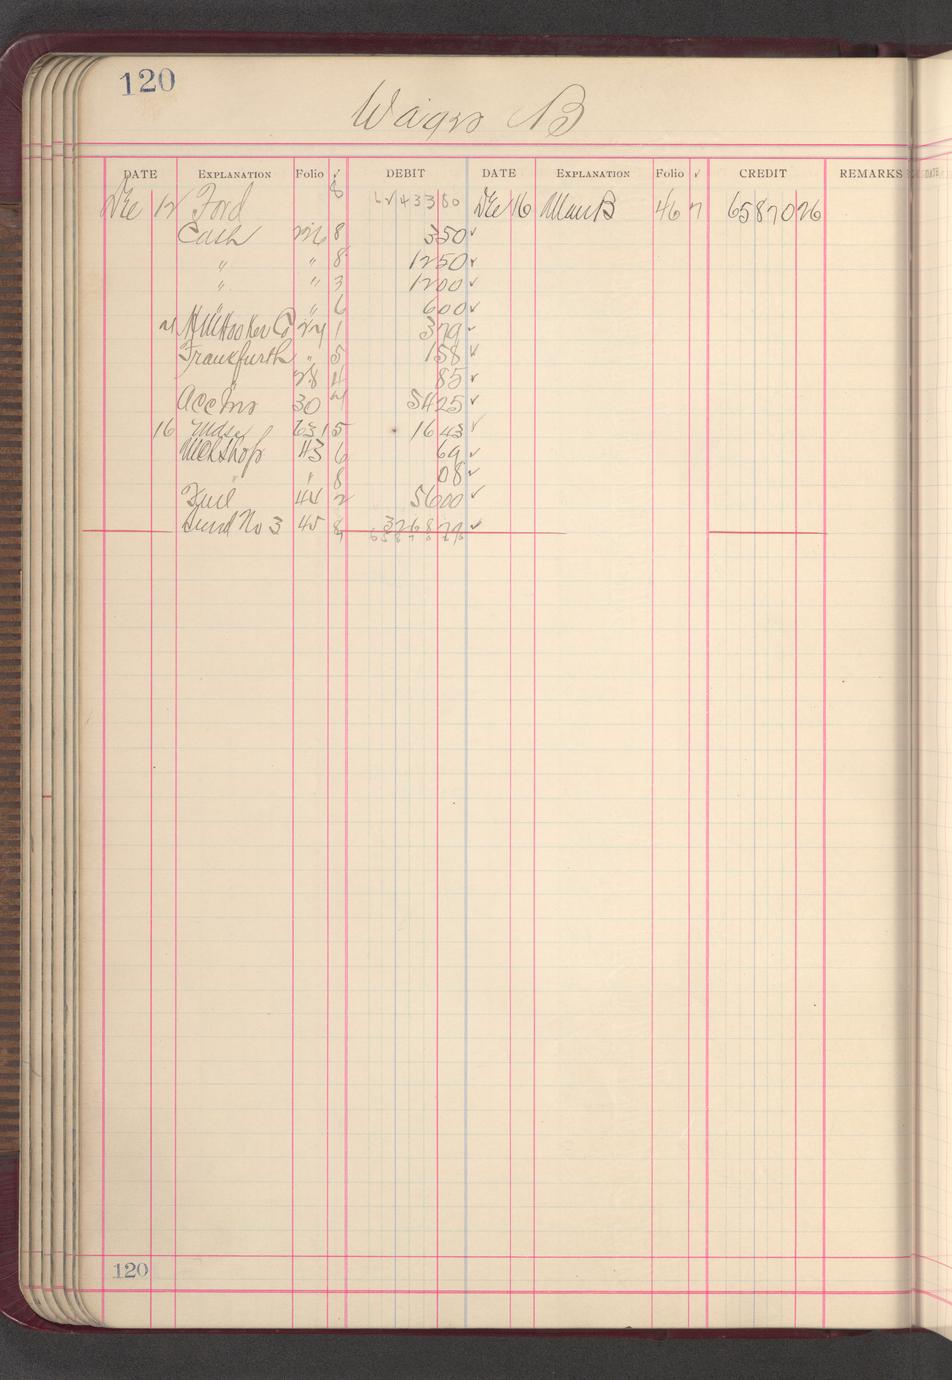 120
Wages B
DATE EXPLANATION Folio ✓ DEBIT DATE EXPLANATION Folio ✓ CREDIT REMARKS
Dec 12 Ford 8 62433 80 Dec 16 Man B 46 7 65870 26
Cash 226 8 3 50 ✓
" " 8 12 50 ✓
" " 3 12 00 ✓
" " 6 6 00 ✓
H W Hooker Co 27 1 3 79 ✓
Frankfurth " 5 1 58 ✓
" 28 4 85 ✓
30 7 54 25 ✓
16 Mdse 231 5 16 43 ✓
Mch Shop 43 6 69 ✓
" 8 08 ✓
Fuel 44 2 56 00 ✓
Sund No 3 45 8 3268 79 ✓
7 65870 26
120